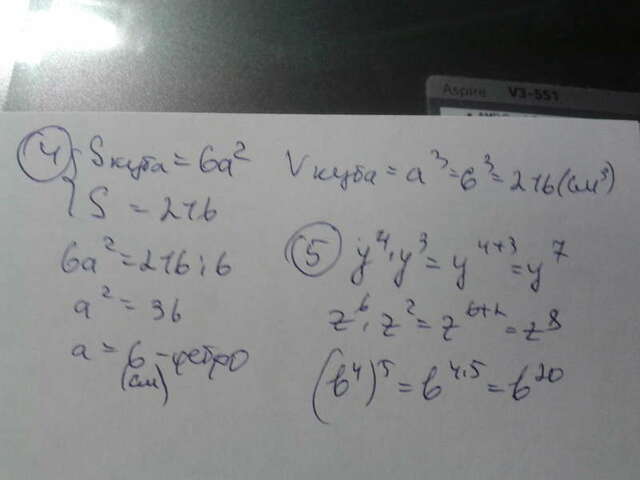 Aspire V3-551
④ { Sкуба = 6a²
S = 216
6a² = 216 : 6
a² = 36
a = 6 - ребро
(см)
Vкуба = a³ = 6³ = 216 (см³)
⑤ y⁴ · y³ = y⁴⁺³ = y⁷
z⁶ · z² = z⁶⁺² = z⁸
(b⁴)⁵ = b⁴·⁵ = b²⁰